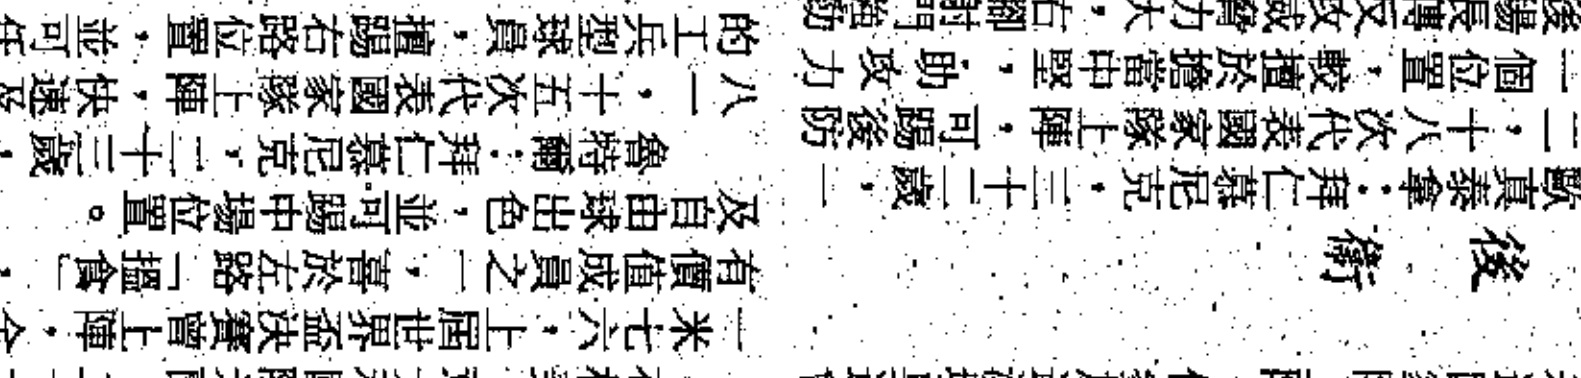 後衛
歐真泰拿：拜仁慕尼克，三十二歲，一
二，十八次代表國家隊上陣，可踢後防
一個位置，較擅於擔當中堅，助攻力
後場長傳反攻威脅力大，右腳射門強勁
一米七六，上屆世界盃決賽曾上陣，今
有價值成員之一，善於左路「搵食」，
及自由球出色，並可踢中場位置。
魯特爾：拜仁慕尼克，二十三歲，
八一，十五次代表國家隊上陣，快速及
的工兵型球員，擅踢右路位置，並可任